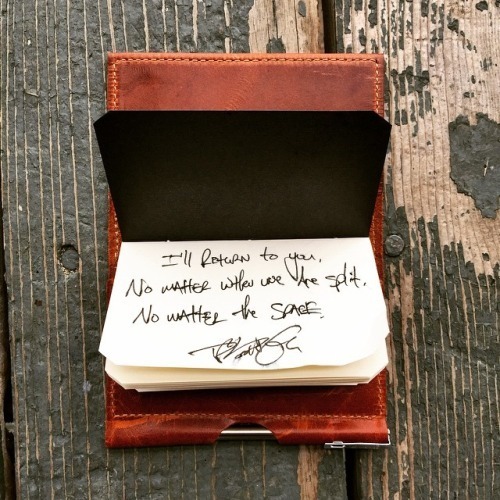 I'll Return to you,
No matter when we are split.
No matter the space.